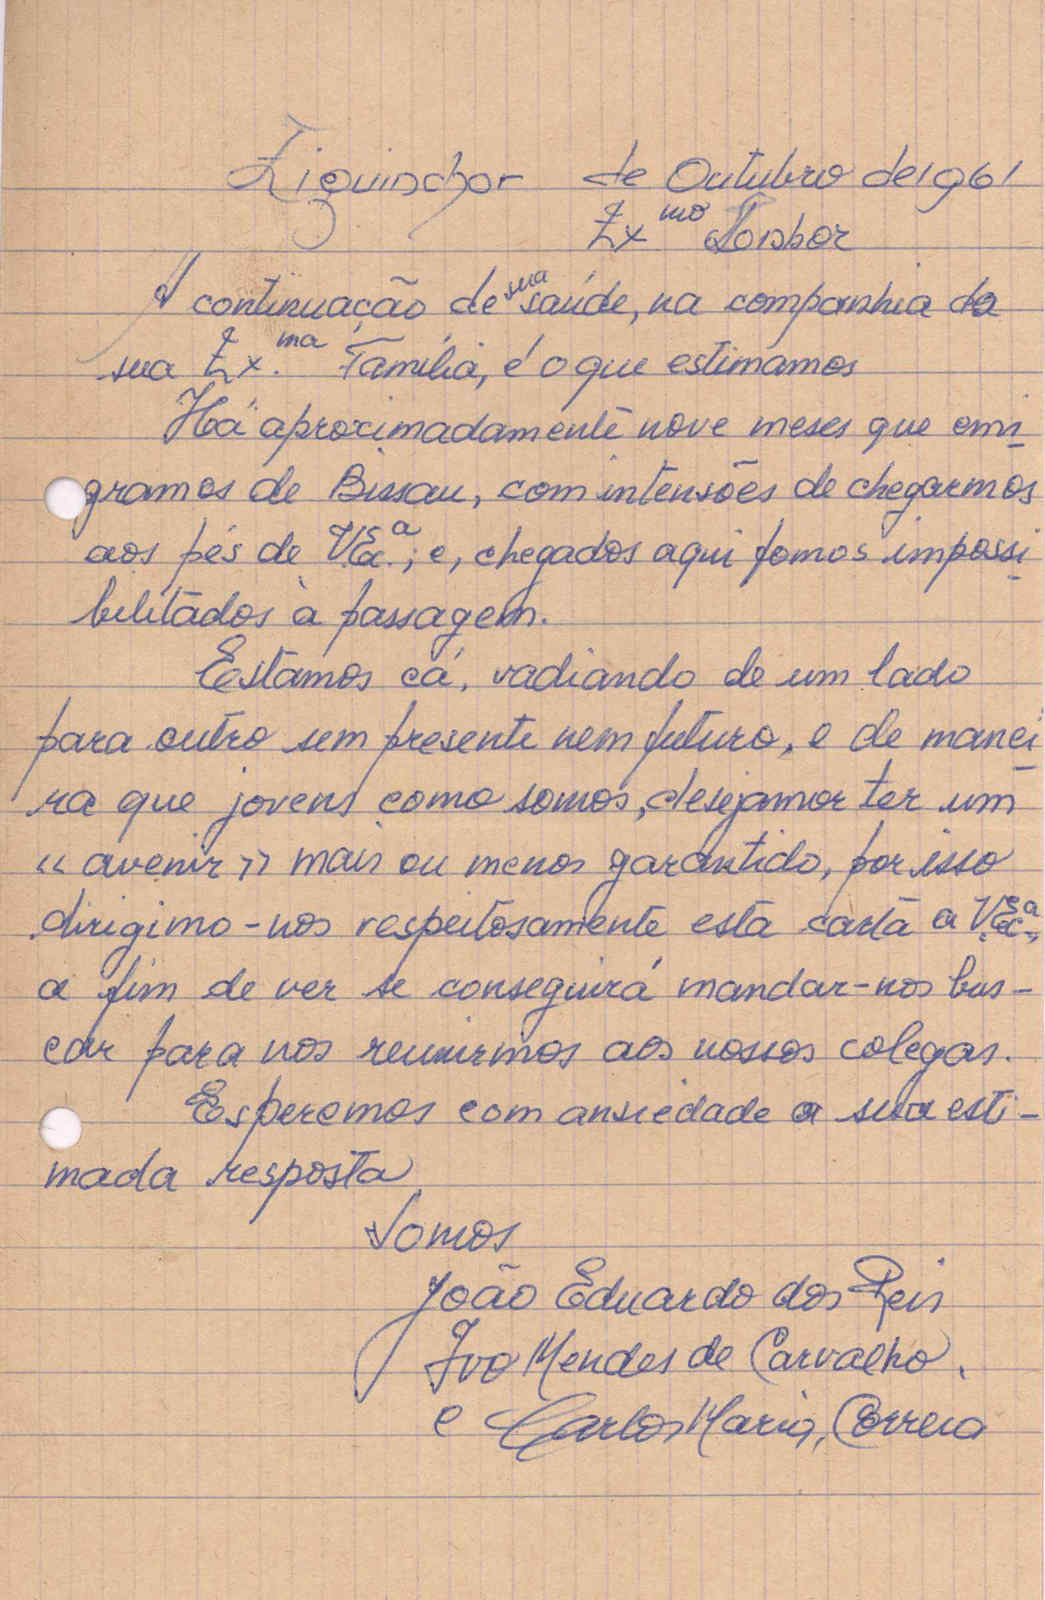 Ziguinchor de Outubro de 1961
Ex.mo Senhor
A continuação de sua saúde, na companhia da
sua Ex.ma Família, é o que estimamos
Há aproximadamente nove meses que emi
gramos de Bissau, com intensões de chegarmos
aos pés de V.Ex.a; e, chegados aqui fomos impossi
bilitados à passagem.
Estamos cá, vadiando de um lado
para outro sem presente nem futuro, e de manei
ra que jovens como somos, desejamos ter um
«avenir» mais ou menos garantido, por isso
dirigimo-nos respeitosamente esta carta a V.Ex.a,
a fim de ver se conseguirá mandar-nos bus-
car para nos reunirmos aos nossos colegas.
Esperemos com ansiedade a sua esti-
mada resposta
Somos
João Eduardo dos Reis
Ivo Mendes de Carvalho.
e Carlos Maria, Correia